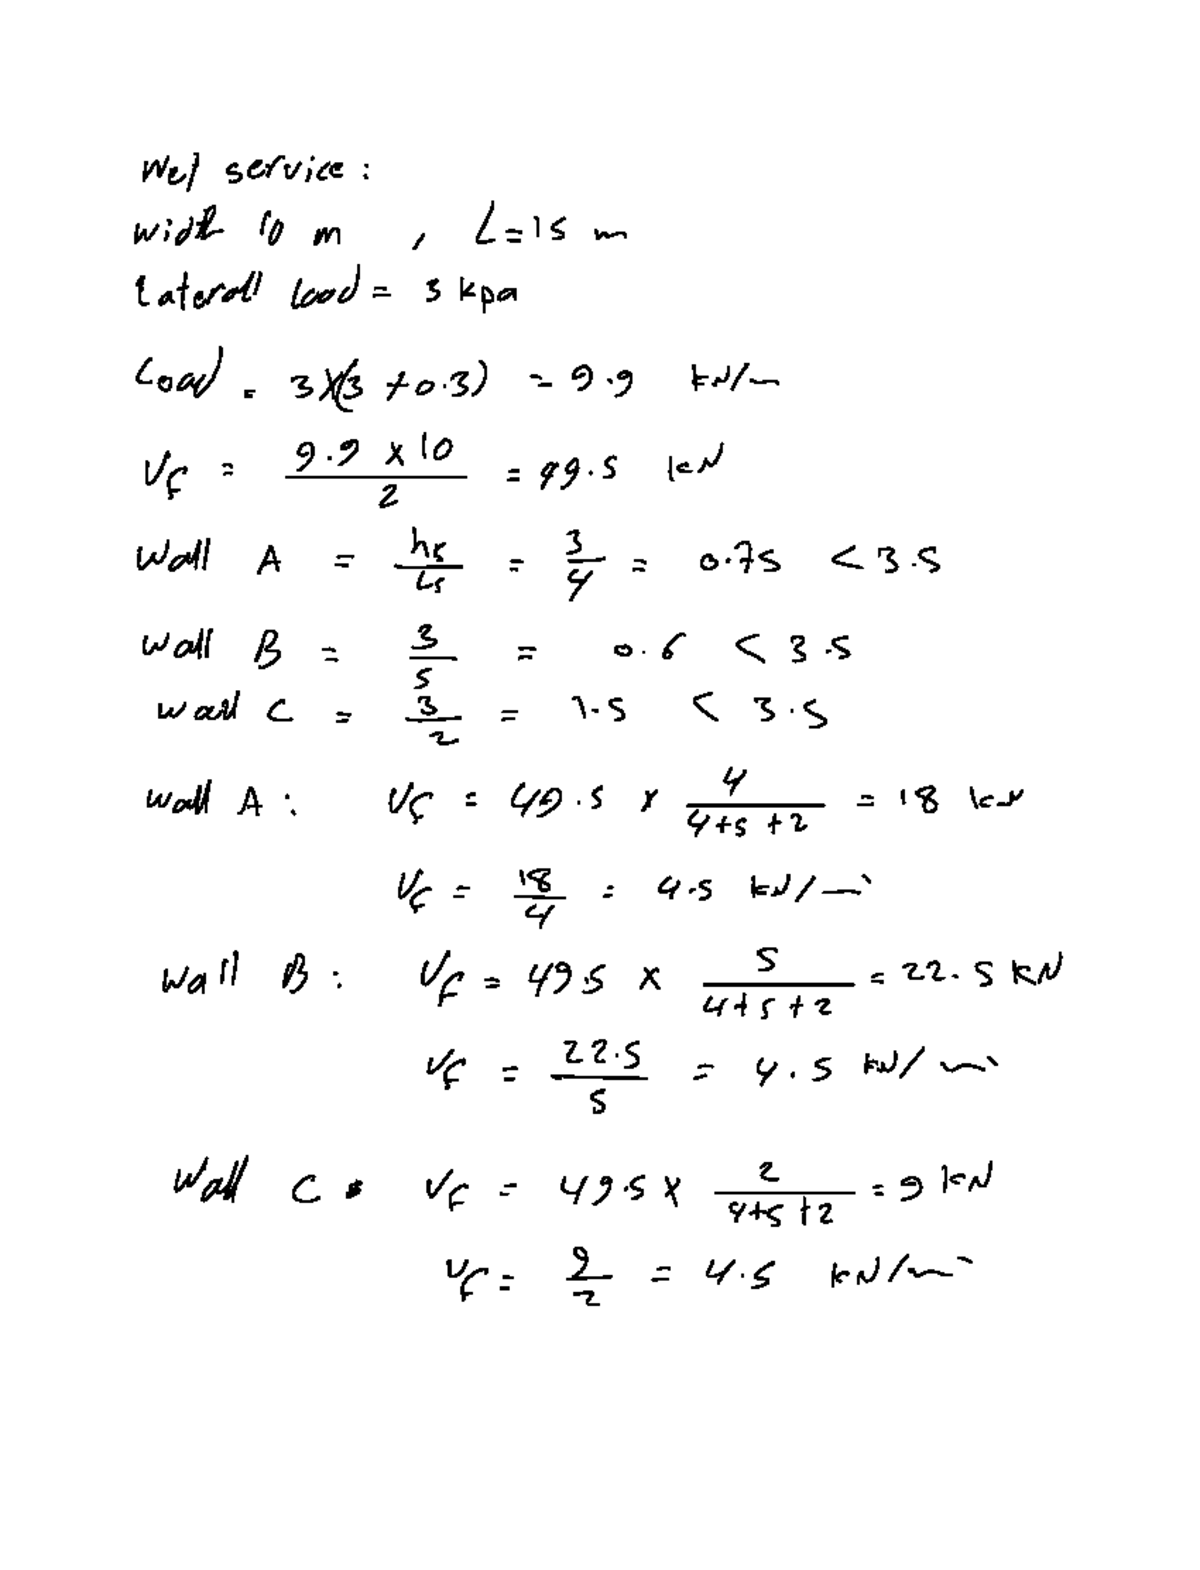 Wet service :
width 10 m , L = 15 m
Laterall load = 3 kpa
Load = 3 x (3 + 0.3) = 9.9 kN/m
Vf = 9.9 x 10 / 2 = 49.5 kN
Wall A = hs / Ls = 3 / 4 = 0.75 < 3.5
Wall B = 3 / 5 = 0.6 < 3.5
Wall C = 3 / 2 = 1.5 < 3.5
Wall A : Vf = 49.5 x 4 / 4+5+2 = 18 kN
Vf = 18 / 4 = 4.5 kN/m
Wall B : Vf = 49.5 x 5 / 4+5+2 = 22.5 kN
Vf = 22.5 / 5 = 4.5 kN/m
Wall C : Vf = 49.5 x 2 / 4+5+2 = 9 kN
Vf = 9 / 2 = 4.5 kN/m